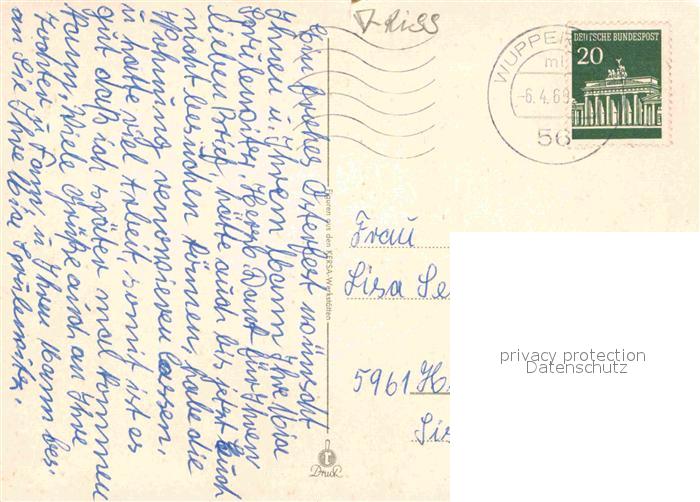 Ein frohes Osterfest wünscht
Ihnen u. Ihrem Mann Ihre Mia
Herzl. Dank für Ihren
lieben Brief, hätte auch bis jetzt Euch
nicht besuchen können, habe die
Wohnung renovieren lassen,
u. hatte viel Arbeit, somit ist es
gut daß ich später mal kommen
kann. Viele Grüße auch an Ihre
Tochter u. Fam. u. Ihren Mann bes.
an Sie Ihre Mia
Riss
WUPPER
-6.4.69
56
DEUTSCHE BUNDESPOST
20
Figuren aus den KERSA-Werkstätten
Frau
Lisa Se
5961 H
privacy protection
Datenschutz
Druck